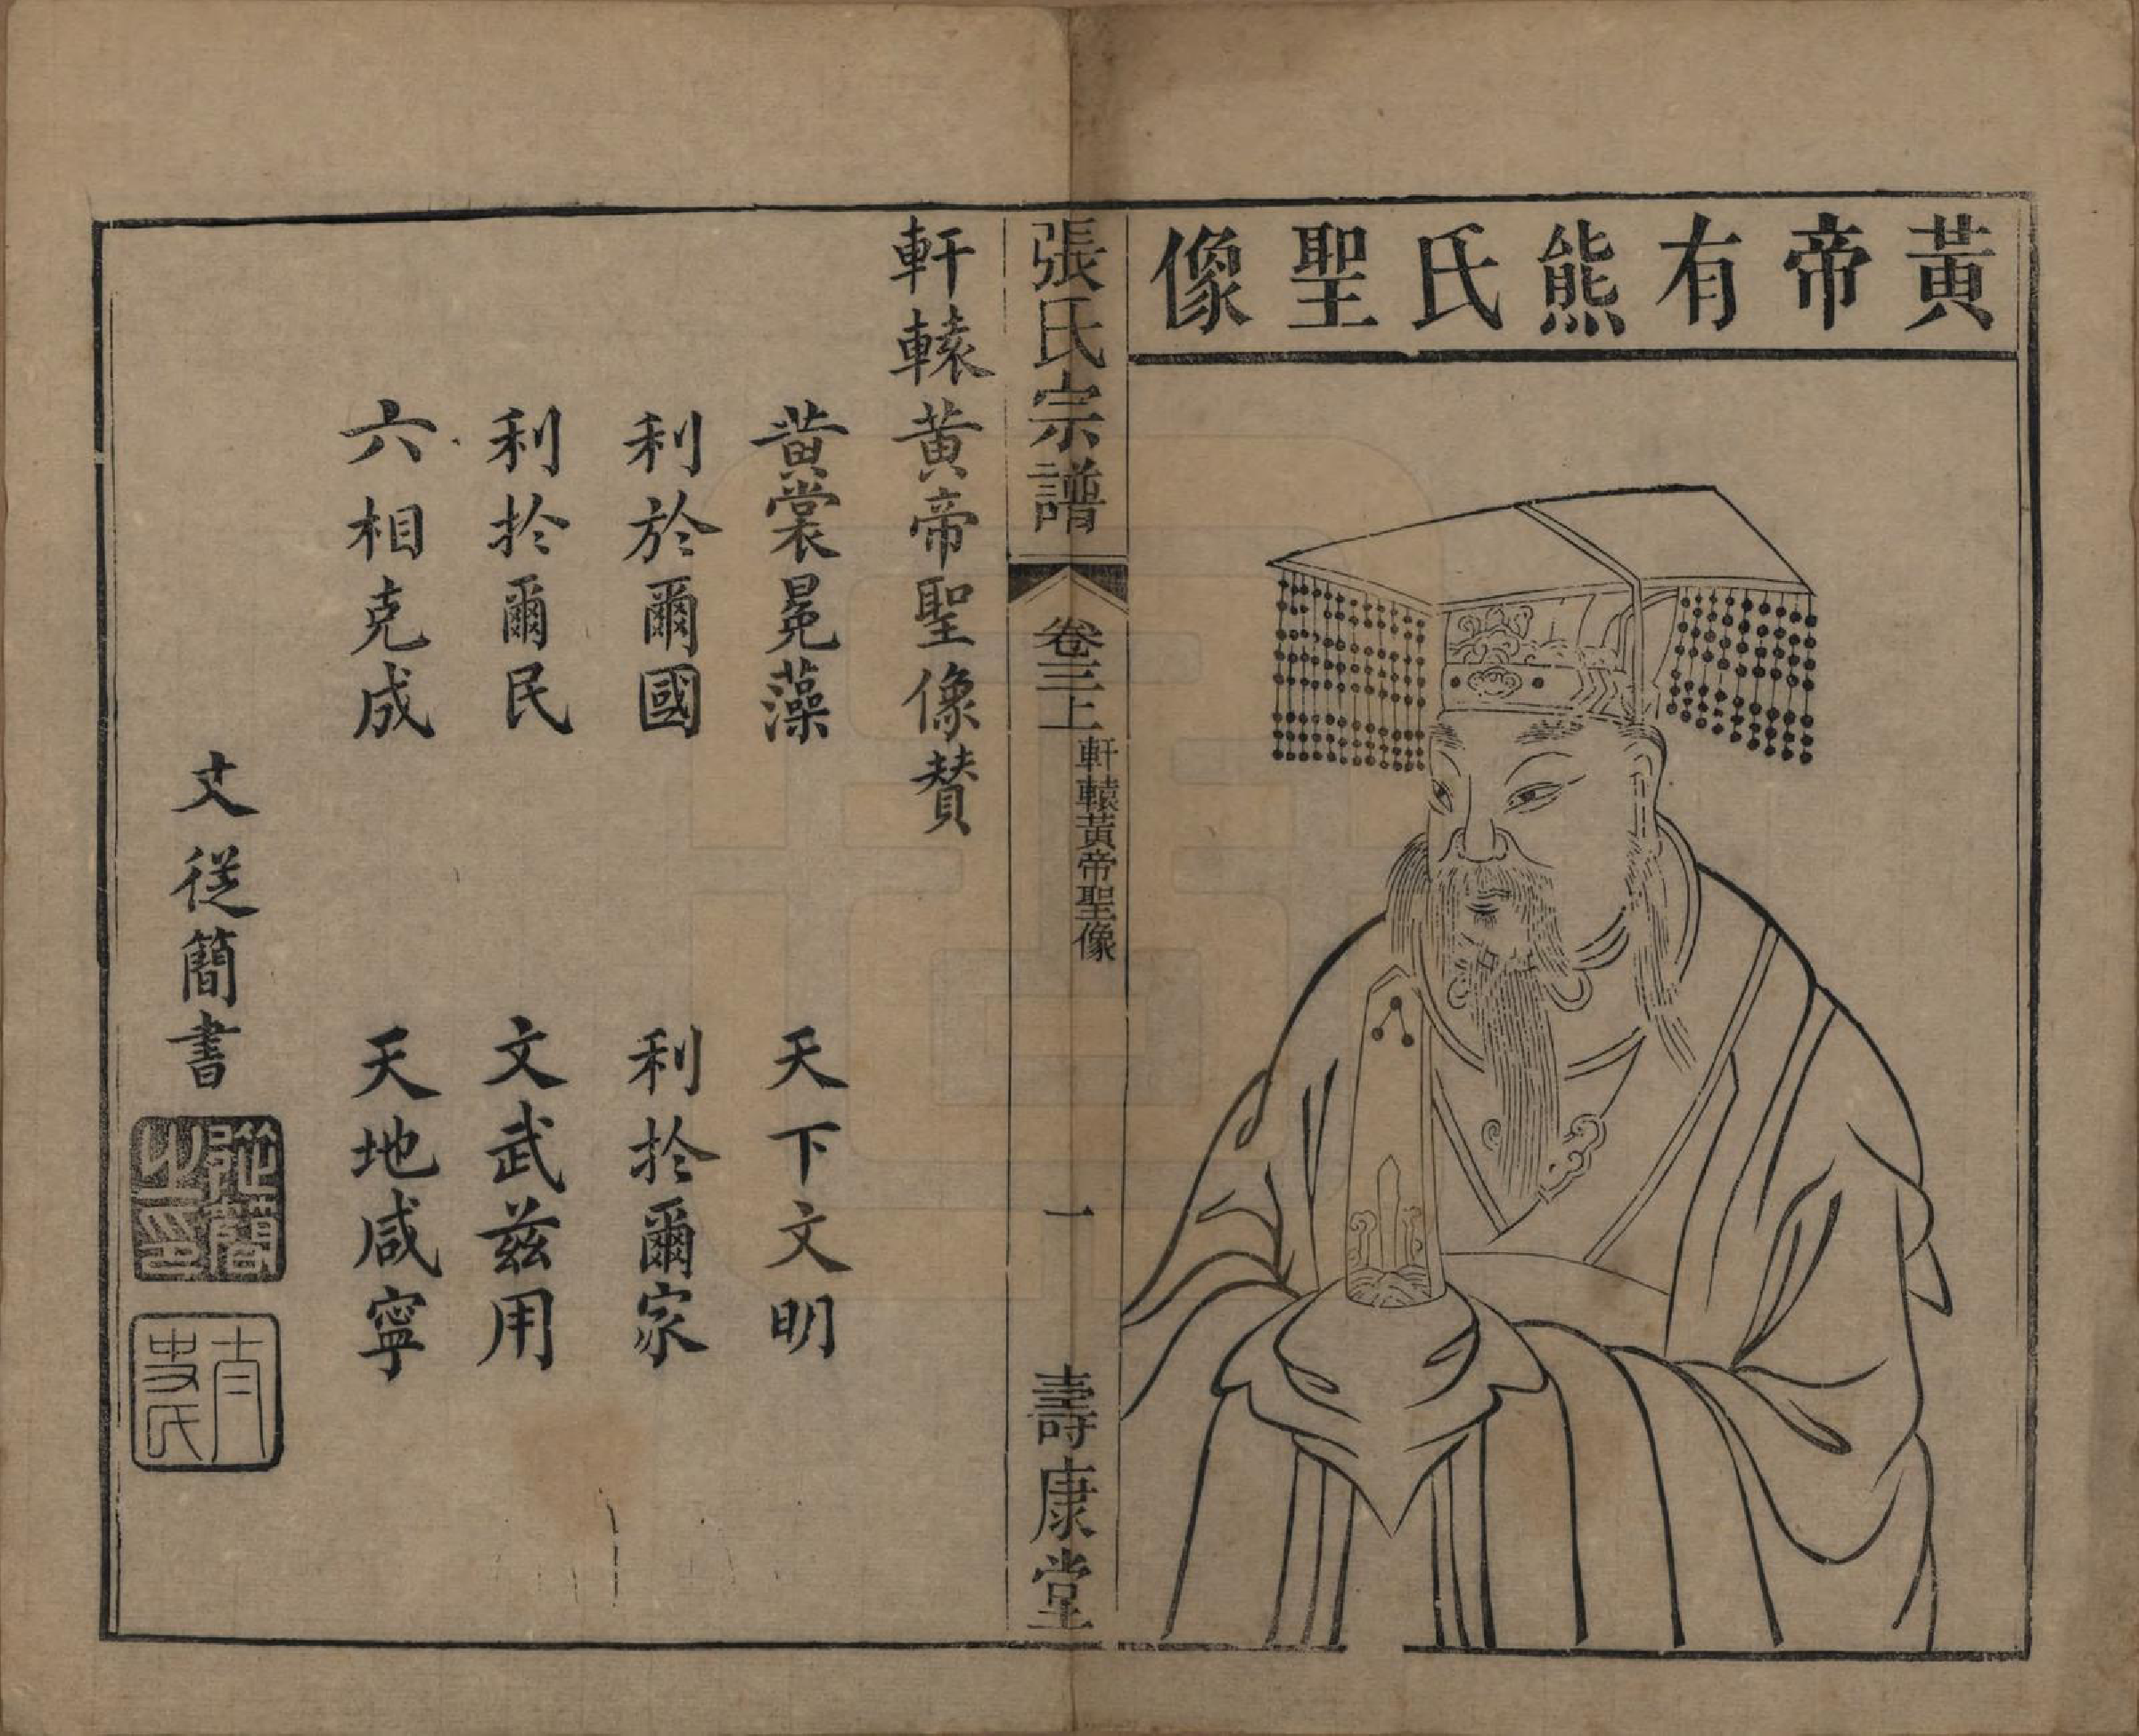 黃帝有熊氏聖像
張氏宗譜
卷三上
軒轅黃帝聖像
一
壽康堂
軒轅黃帝聖像贊
黃裳冕藻 天下文明
利於爾國 利於爾家
利於爾民 文武茲用
六相克成 天地咸寧
文從簡書
從簡之印